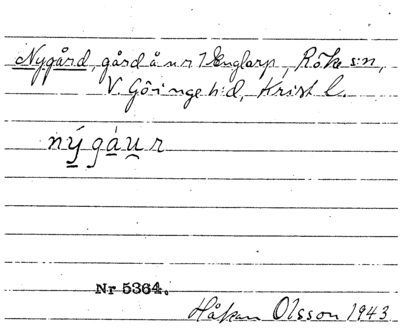 Nygård, gård å nr 7 Englarp, Röke s:n,
V. Göinge h:d, Krist l.
nýgáu̯r
Nr 5364.
Håkan Olsson 1943